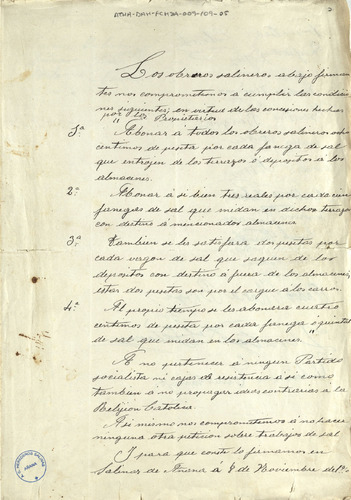 ATHA-DAH-FCHDA-009-109-05
Los obreros salineros abajo firman
tes nos comprometemos a cumplir las condicio
nes siguientes; en virtud de las concesiones hechas
por los Propietarios
1ª Abonar a todos los obreros salineros ocho
centimos de peseta por cada fanega de sal
que entrojen de los terrazos ó depositos a los
almacenes.
2ª Abonar a si bien tres reales por cada cien
fanegas de sal que midan en dichos terrazos
con destino a mencionados almacenes
3ª Tambien se les satisfara dos pesetas por
cada vagon de sal que saquen de los
depositos con destino á fuera de los almacenes,
estas dos pesetas son por el cargue a los carros.
4ª Al propio tiempo se les abonara cuatro
centimos de peseta por cada fanega ó quintal
de sal que midan en los almacenes.
A no pertenecer a ningun Partido
socialista ni cajas de resistencia a si como
tambien a no propagar ideas contrarias á la
Religion Catolica.
Asi mismo nos comprometemos á no hacer
ninguna otra peticion sobre trabajos de sal
I para que conste lo firmamos en
Salinas de Añana á 8 de Noviembre del
AÑANA